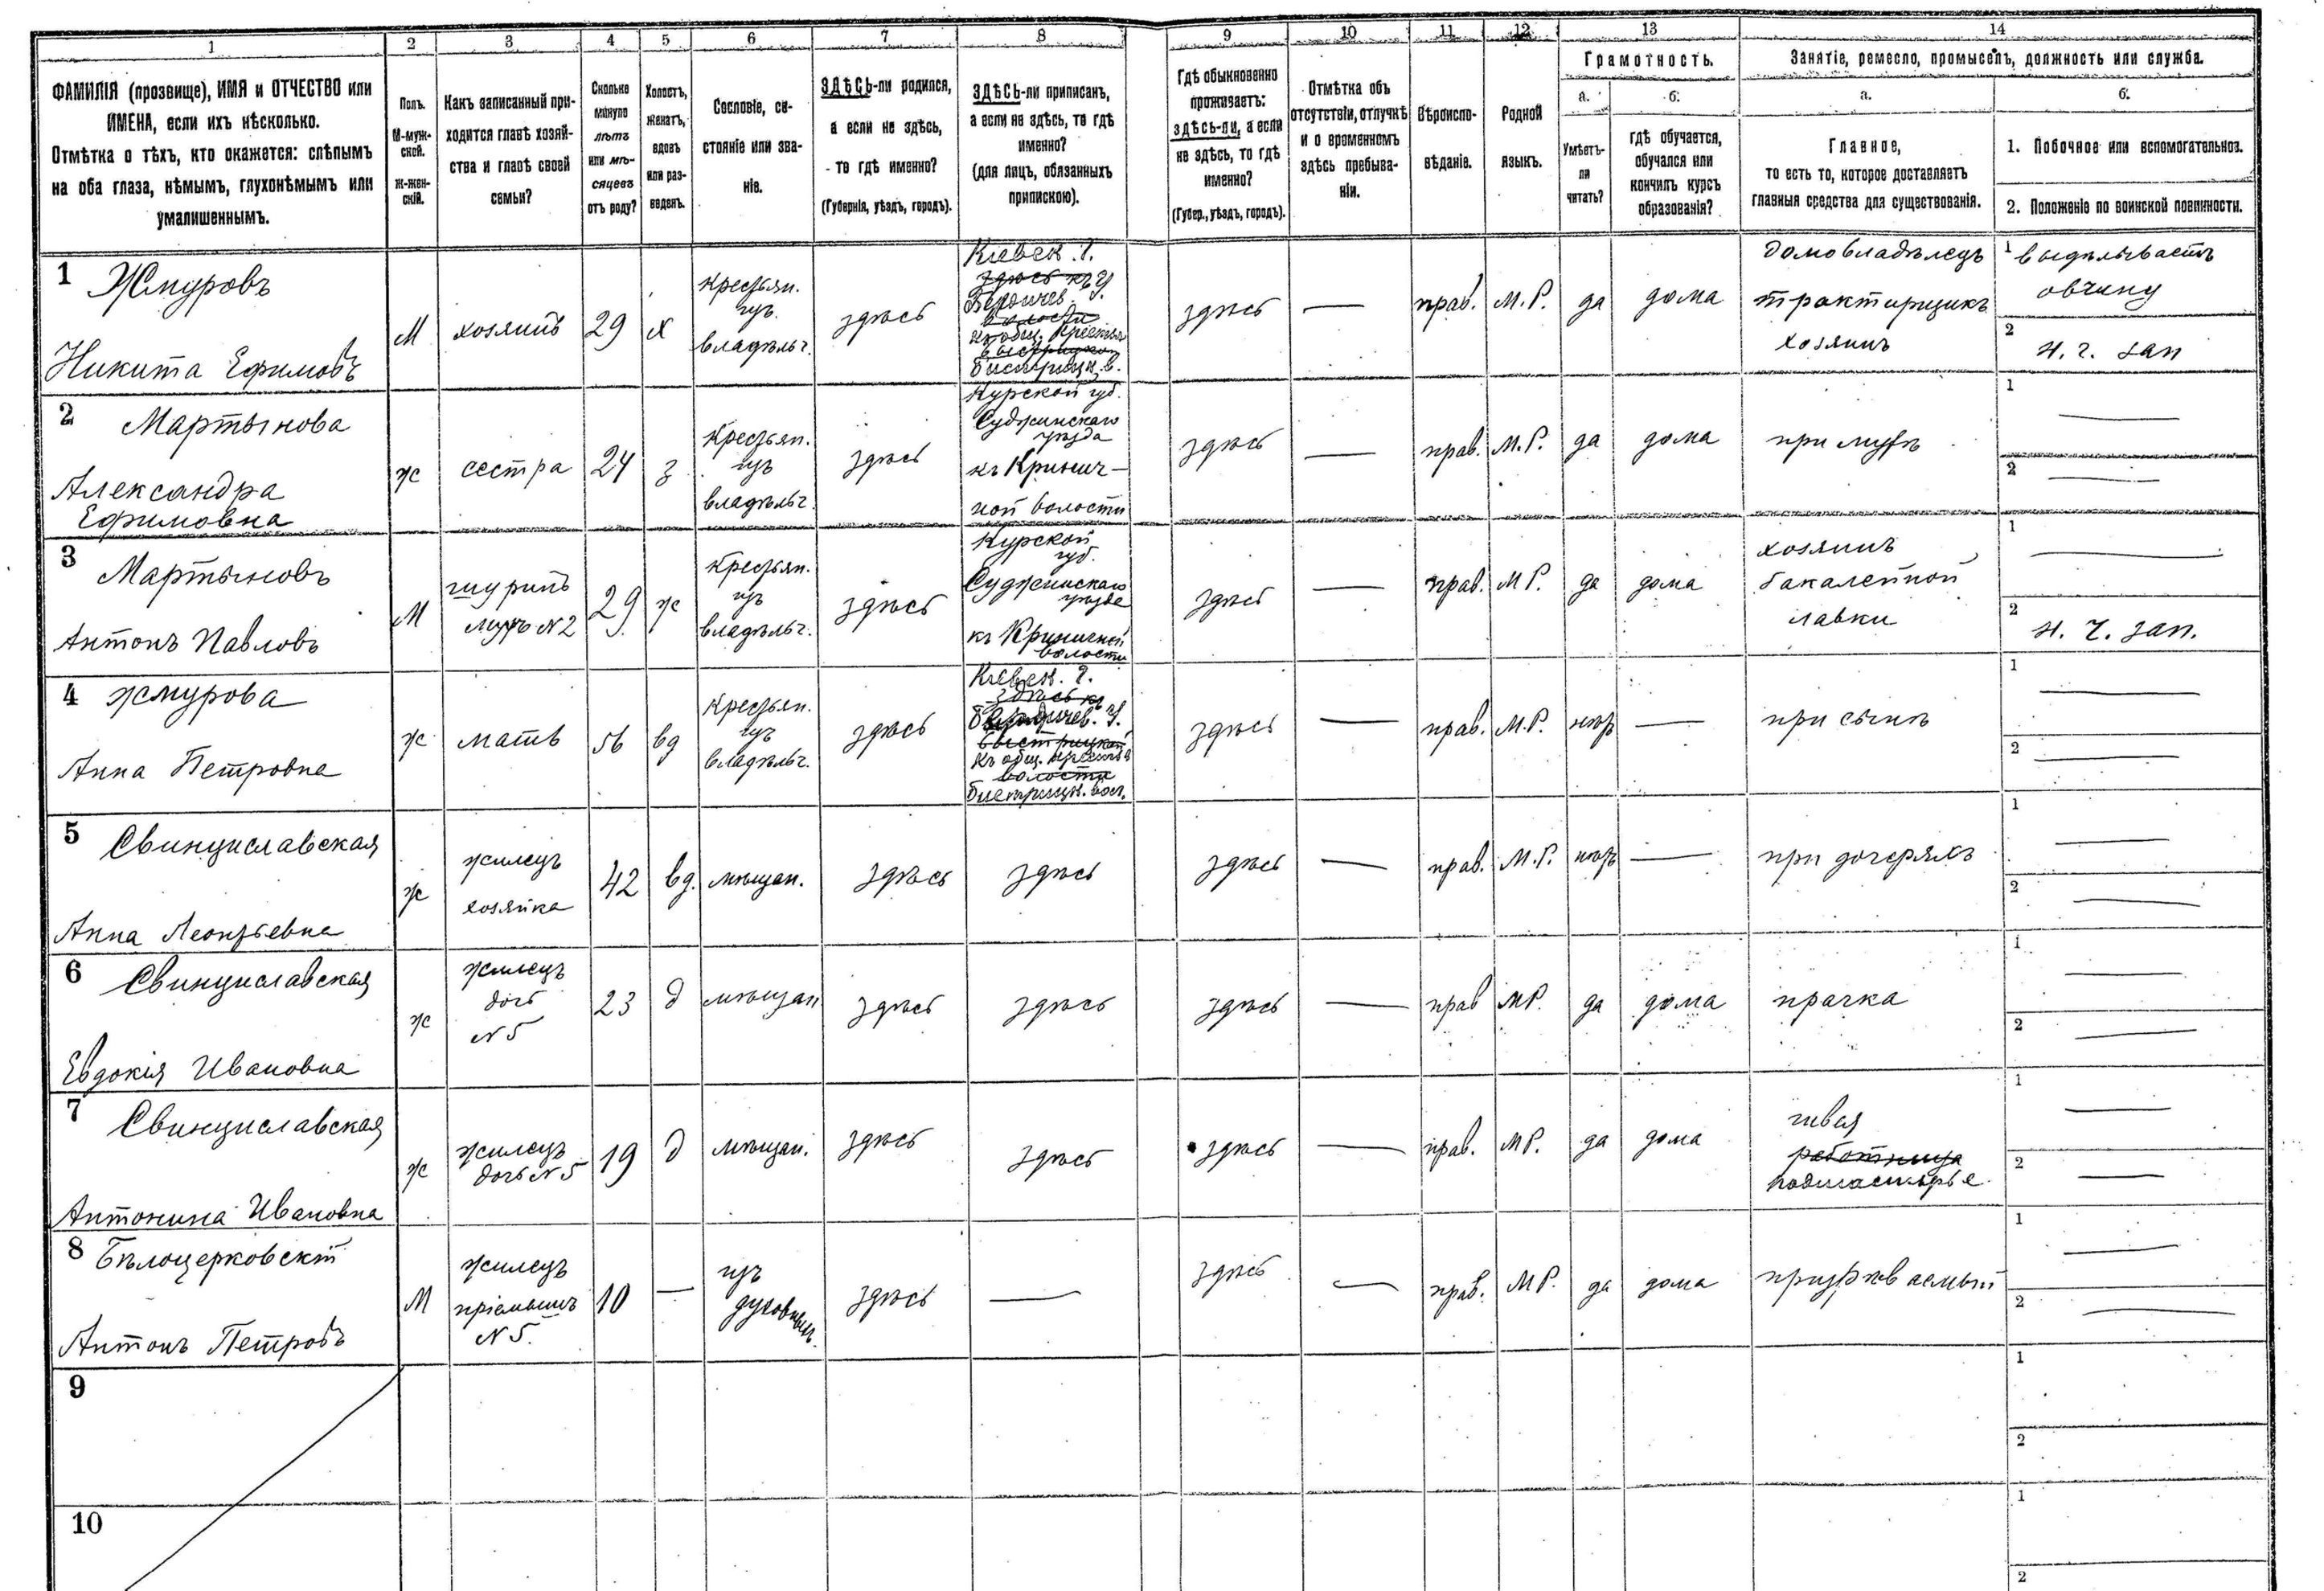 1 2 3 4 5 6 7 8 9 10 11 12 13 14
ФАМИЛІЯ (прозвище), ИМЯ и ОТЧЕСТВО или
ИМЕНА, если ихъ нѣсколько.
Отмѣтка о тѣхъ, кто окажется: слѣпымъ
на оба глаза, нѣмымъ, глухонѣмымъ или
умалишеннымъ.
Полъ.
М-муж-
ской.
Ж-жен-
скій.
Какъ записанный при-
ходится главѣ хозяй-
ства и главѣ своей
семьи?
Сколько
минуло
лѣтъ
или мѣ-
сяцевъ
отъ роду?
Холостъ,
женатъ,
вдовъ
или раз-
веденъ.
Сословіе, со-
стояніе или зва-
ніе.
ЗДѢСЬ-ли родился,
а если не здѣсь,
- то гдѣ именно?
(Губернія, уѣздъ, городъ).
ЗДѢСЬ-ли приписанъ,
а если не здѣсь, то гдѣ
именно?
(для лицъ, обязанныхъ
припискою).
Гдѣ обыкновенно
проживаетъ:
здѣсь-ли, а если
не здѣсь, то гдѣ
именно?
(Губер., уѣздъ, городъ).
Отмѣтка объ
отсутствіи, отлучкѣ
и о временномъ
здѣсь пребыва-
ніи.
Вѣроиспо-
вѣданіе.
Родной
языкъ.
Грамотность.
а. б.
Умѣетъ-
ли
читать?
гдѣ обучается,
обучался или
кончилъ курсъ
образованія?
Занятіе, ремесло, промыселъ, должность или служба.
а. б.
Главное,
то есть то, которое доставляетъ
главныя средства для существованія.
1. Побочное или вспомогательное.
2. Положеніе по воинской повинности.
1 Жмуровъ
Никита Ефимовъ
М
хозяинъ
29
х
Крестьян.
изъ
владѣльч.
здѣсь
Кіевск. г.
здѣсь къ
Бердичев. у.
волости
къ общ. крестья
быстрицкой
быстрицк. в.
здѣсь
—
прав.
М.Р.
да
дома
домовладѣлецъ
трактирщикъ
хозяинъ
1 выдѣлываетъ
овчину
2 н. ч. зап
2 Мартынова
Александра
Ефимовна
ж
сестра
24
з
Крестьян.
изъ
владѣльч.
здѣсь
Курской губ.
Суджинскаго
уѣзда
къ Кринич-
ной волости
здѣсь
—
прав.
М.Р.
да
дома
при мужѣ
1 —
2 —
3 Мартыновъ
Антонъ Павловъ
М
шуринъ
мужъ N 2
29
ж
Крестьян.
изъ
владѣльч.
здѣсь
Курской
губ.
Суджинскаго
уѣзда
къ Криничной
волости
здѣсь
—
прав.
М Р.
да
дома
хозяинъ
бакалейной
лавки
1 —
2 н. ч. зап.
4 Жмурова
Анна Петровна
ж
мать
56
вд
Крестьян.
изъ
владѣльч.
здѣсь
Кіевск. г.
здѣсь къ
Бердичев. у.
быстрицкой
къ общ. крестья
волости
быстрицк. вол.
здѣсь
—
прав.
М.Р.
нѣтъ
—
при сынѣ
1 —
2 —
5 Свинциславская
Анна Леонтьевна
ж
жилецъ
хозяйка
42
вд.
мѣщан.
здѣсь
здѣсь
здѣсь
—
прав.
М.Р.
нѣтъ
—
при дочеряхъ
1 —
2 —
6 Свинциславская
Евдокія Ивановна
ж
жилецъ
дочь
N 5
23
д
мѣщан
здѣсь
здѣсь
здѣсь
—
прав
МР.
да
дома
прачка
1 —
2 —
7 Свинциславская
Антонина Ивановна
ж
жилецъ
дочь N 5
19
д
мѣщан.
здѣсь
здѣсь
здѣсь
—
прав.
МР.
да
дома
швея
работница
подмастерье.
1 —
2 —
8 Бѣлоцерковскій
Антонъ Петровъ
М
жилецъ
пріемышъ
N 5.
10
—
изъ
духовныхъ.
здѣсь
—
здѣсь
—
прав.
МР.
да
дома
призрѣваемый
1 —
2 —
9
1
2
10
1
2